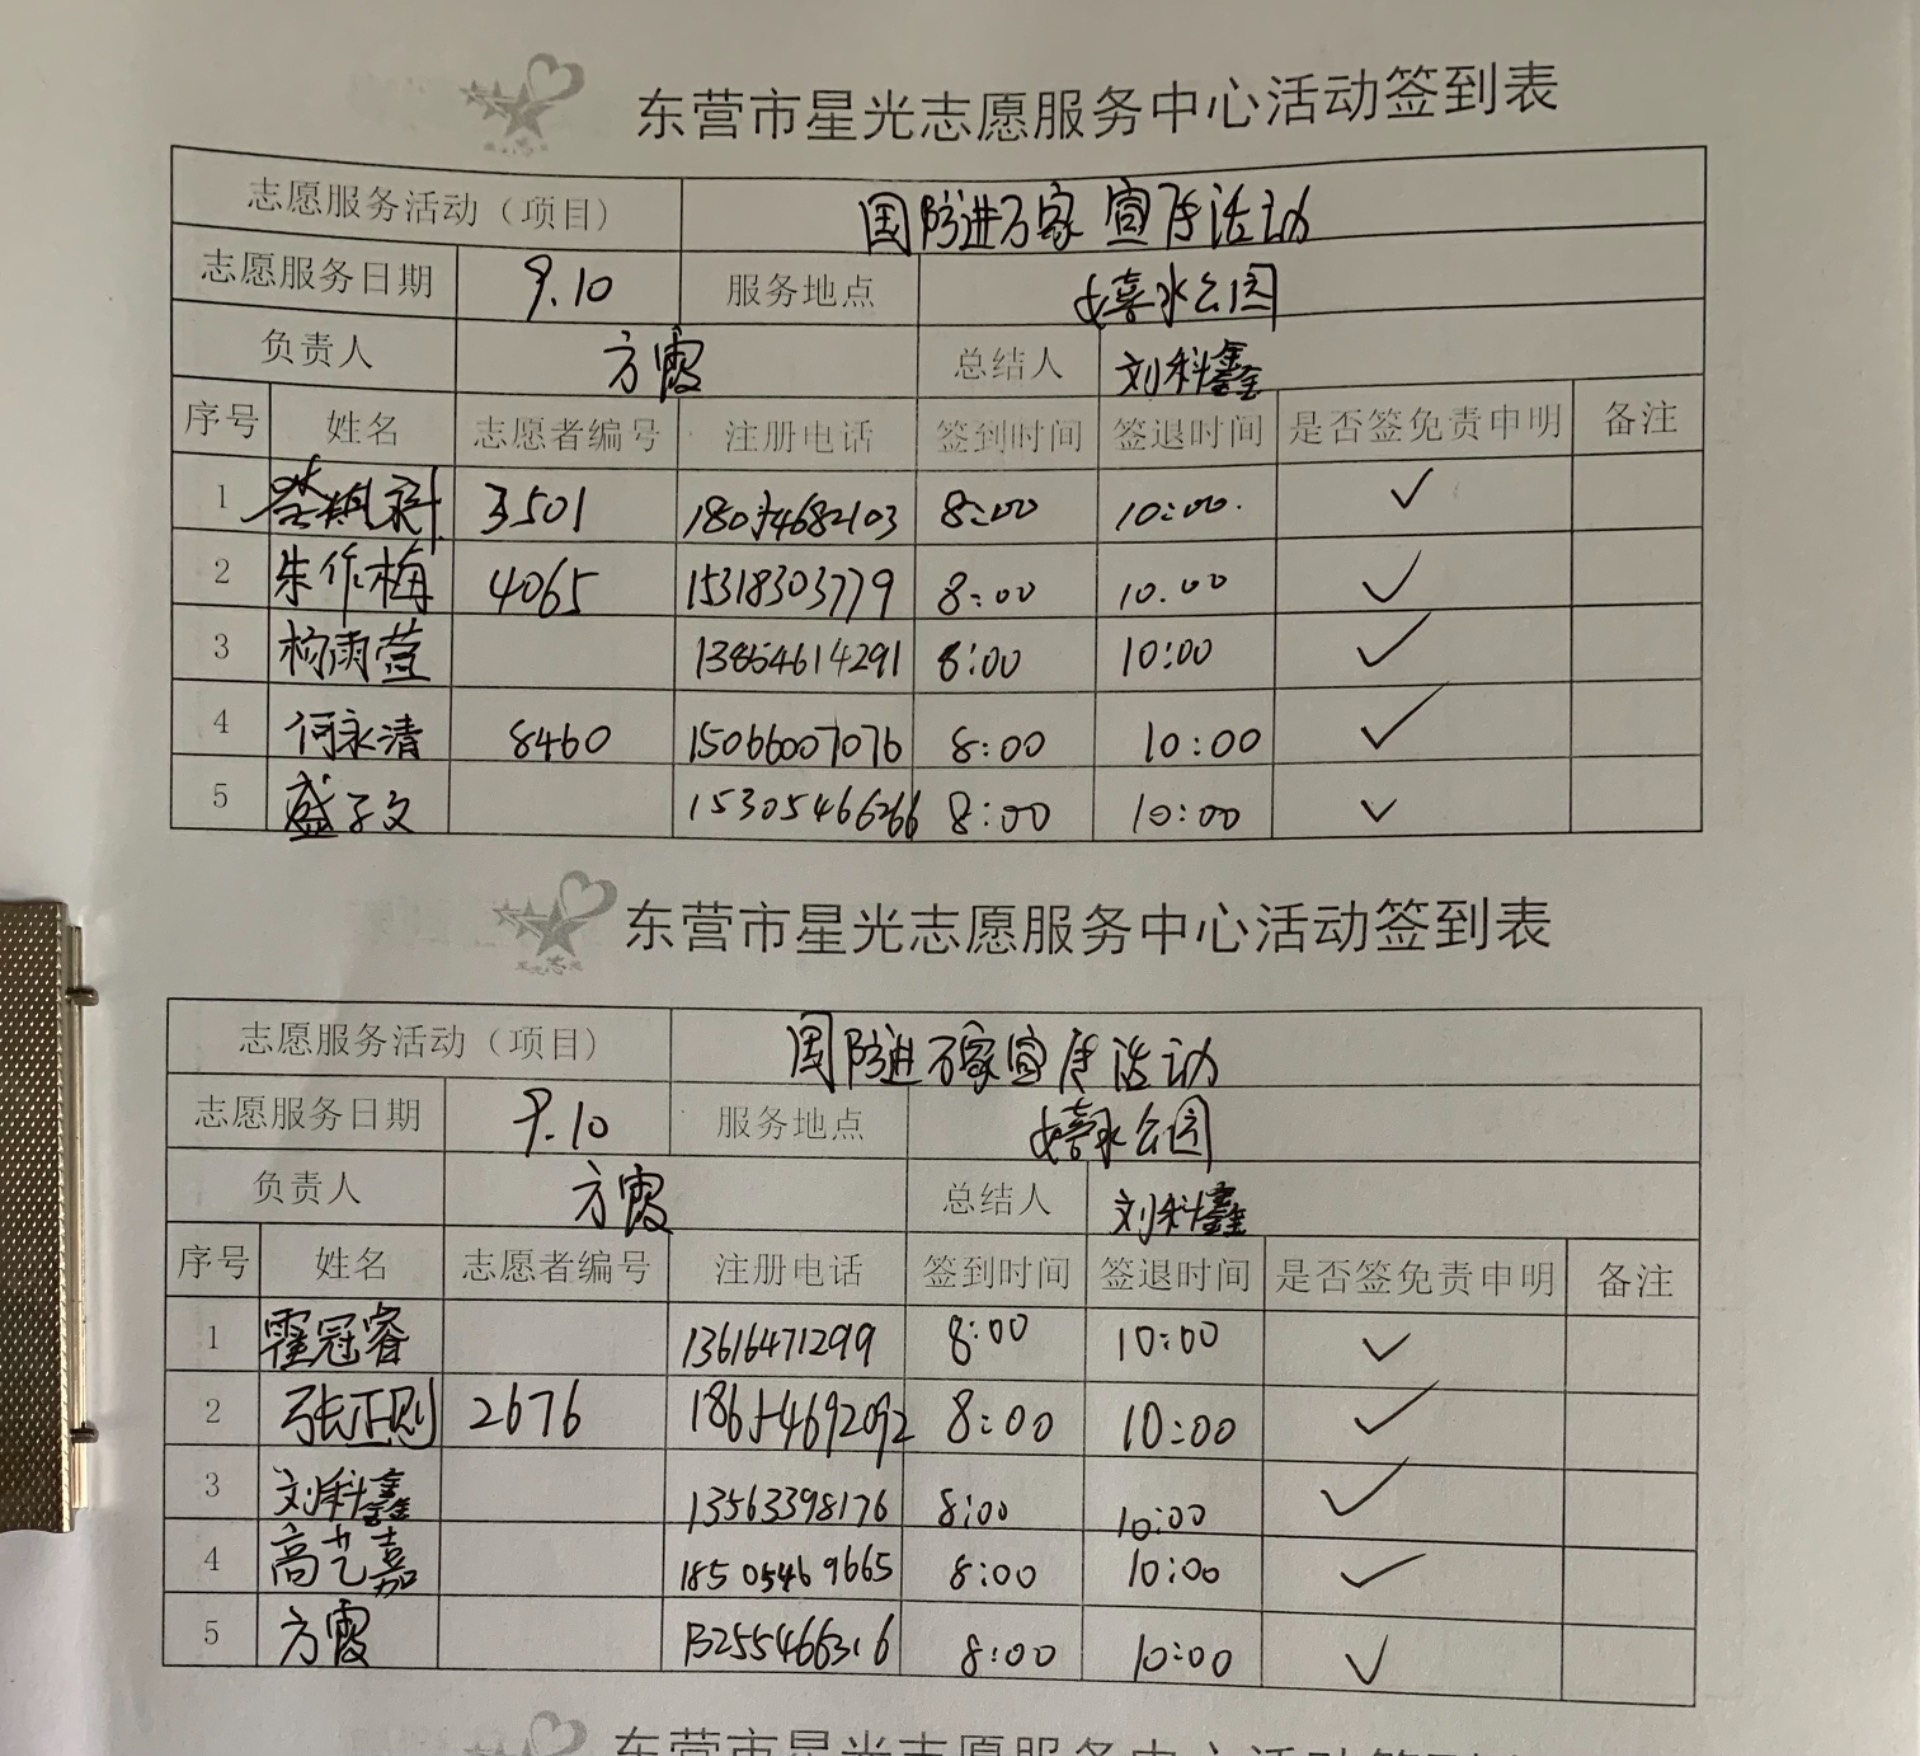 东营市星光志愿服务中心活动签到表
志愿服务活动（项目） 国防进万家宣传活动
志愿服务日期 9.10 服务地点 嬉水公园
负责人 方霞 总结人 刘科鑫
序号 姓名 志愿者编号 注册电话 签到时间 签退时间 是否签免责申明 备注
1 3501 18054682103 8:00 10:00. ✓
2 朱作梅 4065 15318303779 8:00 10.00 ✓
3 杨雨萱 13854614291 8:00 10:00 ✓
4 何永清 8460 15066007076 8:00 10:00 ✓
5 盛子文 15305466266 8:00 10:00 ✓
东营市星光志愿服务中心活动签到表
志愿服务活动（项目） 国防进万家宣传活动
志愿服务日期 9.10 服务地点 嬉水公园
负责人 方霞 总结人 刘科鑫
序号 姓名 志愿者编号 注册电话 签到时间 签退时间 是否签免责申明 备注
1 霍冠睿 13616471299 8:00 10:00 ✓
2 张正则 2676 18654692092 8:00 10:00 ✓
3 刘科鑫 13563398176 8:00 10:00 ✓
4 高艺嘉 18505469665 8:00 10:00 ✓
5 方霞 13255466316 8:00 10:00 ✓
东营市星光志愿服务中心活动签到